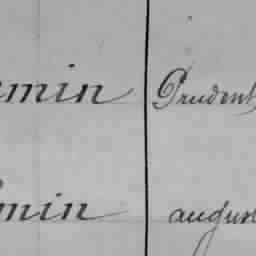 emin Prudent
emin augus